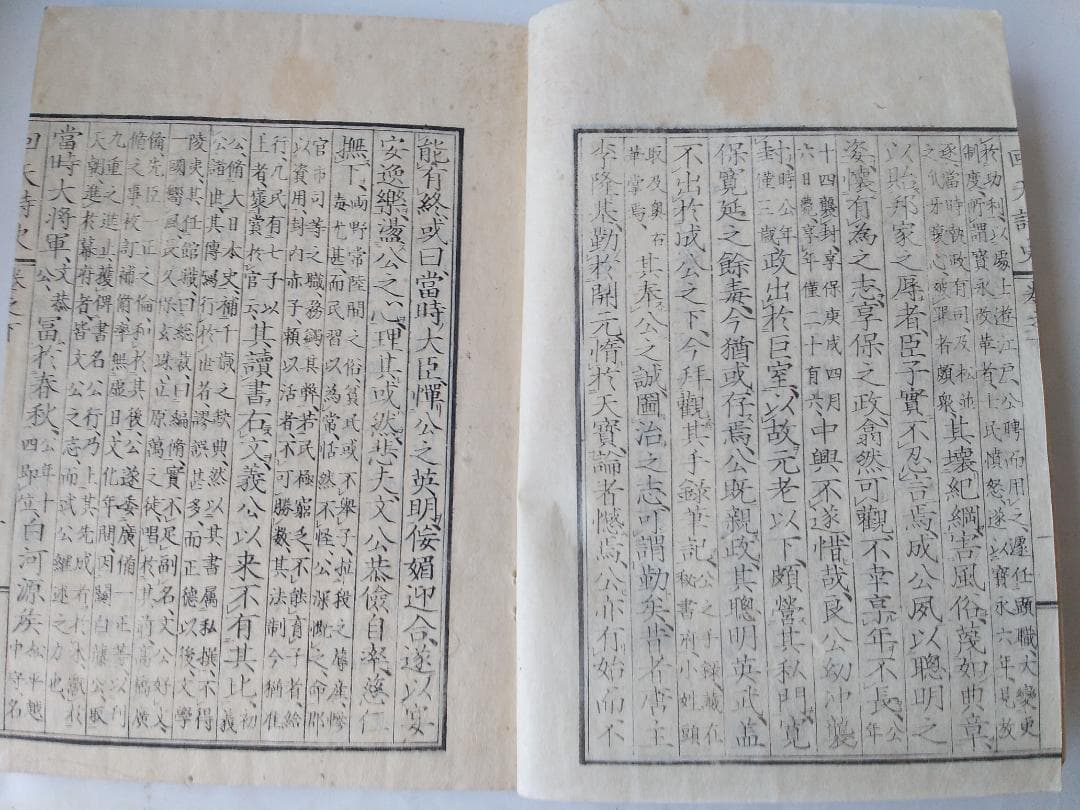 回天詩史 卷之下
於功利、以處上遊江戶、公聘而用之、遷任顯職、大變更
制度、所謂寶永改革者、士民憤怒、遂以寶永六年見放
逐、當時執政有司、及松並
之爪牙腹心破罪者頗衆、
其壞紀綱、害風俗、蔑如典章、
以貽邦家之辱者、臣子實不忍言焉、成公夙以聰明之
姿、懷有為之志、享保之政翕然可觀、不幸享年不長、公年
十四襲封、享保庚戌四月
六日薨、享年僅二十有六、
中興不遂、惜哉、良公幼冲襲
封、時公年僅三歲政出於巨室、以故元老以下、頗營其私門、寬
保寬延之餘毒、今猶或存焉、公既親政、其聰明英武、盖
不出於成公之下、今拜觀其手錄筆記、公之手錄、藏在秘書府、小姓頭
取及奧右筆掌焉、其奉公之誠、圖治之志、可謂勤矣、昔者唐主
李隆基、勤於開元、惰於天寶、論者憾焉、公亦有始而不
能有終、或曰當時大臣憚公之英明、佞媚迎合、遂以宴
安逸樂、盗公之心、理其或然、悲夫、文公恭儉自率、慈仁
撫下、兩野常陸間之俗、貧民或不舉子、拉殺之蓐産、慘
毒尤甚、而民習以為常、恬然不怪、公深慨之、命郡
官市司等之職務、蠲其弊、若民極窮乏、不能育子者、給
以資用、封内赤子賴以活者、不可勝數、其法制今猶隹
行、凡民有七子以
上者、褒賞於官云、
其讀書右文、義公以來不有其比、初義
公脩大日本史、補千歲之缺典、然以其書屬私撰、不得
公諸世、其傳寫行於世者、謬誤甚多、而正德以後、文學
陵夷、其任館職曰總裁曰編脩、實不足副名、文公好文、
一國嚮風、久保玄妹立原萬之徒唱於其前、高橋廣
備先臣一正之倫和於其後、公遂委廣備一正等以刊
脩之事、校訂補脩、率無虚日、文化年間、因關白藤公取
九重之進止、獲書名公行、乃上其先成者於
天朝、進於幕府者、皆文公之志、而武公繼述之力也、
當時大將軍、文恭公、富於春秋、公年十四即位、白河源侯松平越中守名
回天詩史 卷之下